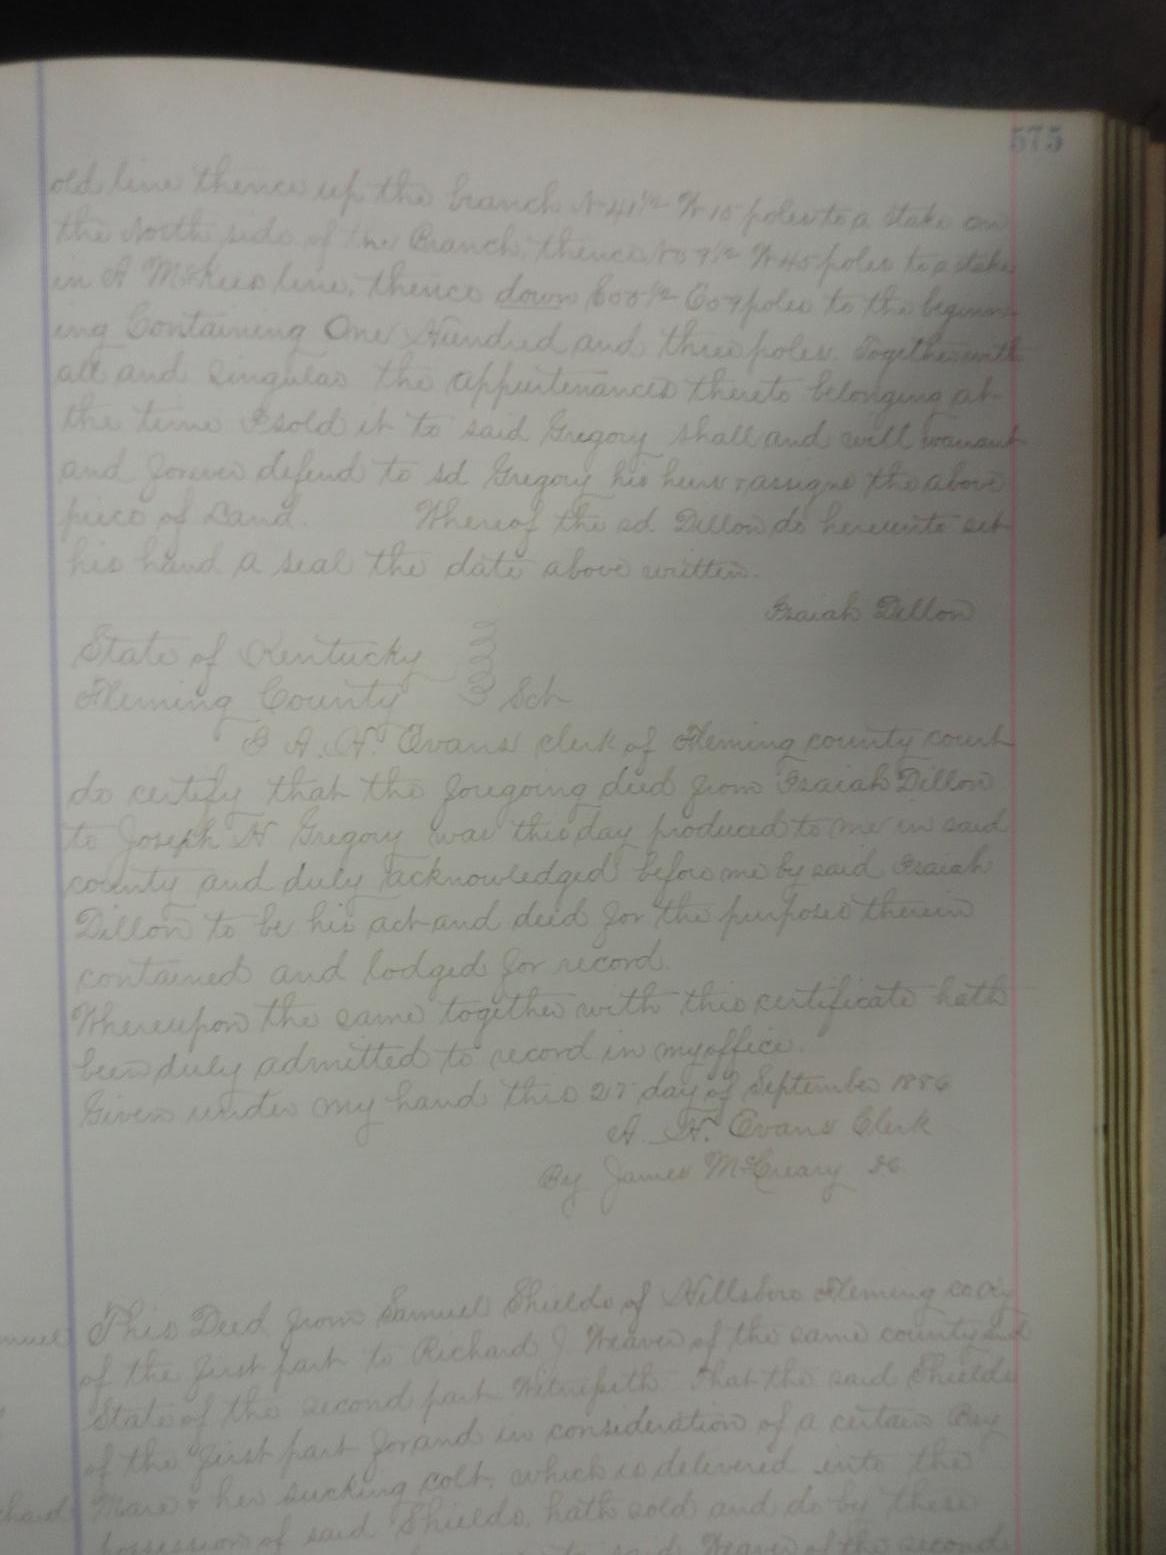 575
old line thence up the branch N 41 1/2 W 15 poles to a stake on
the North side of the Branch, thence 9 1/2 W 45 poles to a stake
in A McKees line, thence down poles to the beginn-
ing Containing One Hundred and three poles. Together with
all and singular the appurtenances thereto belonging at
the time I sold it to said Gregory shall and will warrant
and forever defend to sd Gregory his heirs & assigns the above
piece of Land. Whereof the sd. Dillon do hereunto set
his hand a seal the date above written.
Isaiah Dillon
State of Kentucky
Fleming County Sct
I A. H. Evans clerk of Fleming county court
do certify that the foregoing deed from Isaiah Dillon
to Joseph H Gregory was this day produced to me in said
county and duly acknowledged before me by said Isaiah
Dillon to be his act and deed for the purposes therein
contained and lodged for record.
Whereupon the same together with this certificate hath
been duly admitted to record in my office.
Given under my hand this 27 day of September 1886
A. H. Evans Clerk
By James McCreary DC.
This Deed from Samuel Shields of Hillsboro Fleming co Ky
of the first part to Richard J Weaver of the same county and
State of the second part Witnesseth That the said Shields
of the first part for and in consideration of a certain Bay
Mare & her sucking colt, which is delivered into the
possession of said Shields, hath sold and do by these
to said Weaver of the second